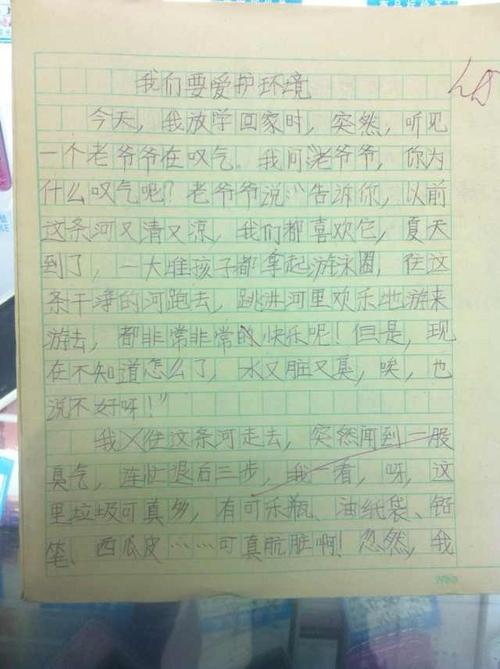 我们要爱护环境
今天，我放学回家时，突然，听见
一个老爷爷在叹气。我问老爷爷，你为
什么叹气呢？老爷爷说：“告诉你，以前
这条河又清又凉，我们都喜欢它，夏天
到了，一大堆孩子都拿起游泳圈，往这
条干净的河跑去，跳进河里欢乐地游来
游去，都非常非常的快乐呢！但是，现
在不知道怎么了，水又脏又臭，唉，也
说不好呀！”
我往这条河走去，突然闻到一股
臭气，连忙退后三步，我一看，呀，这
里垃圾可真多，有可乐瓶、油纸袋、铅
笔、西瓜皮……可真肮脏啊！忽然，我